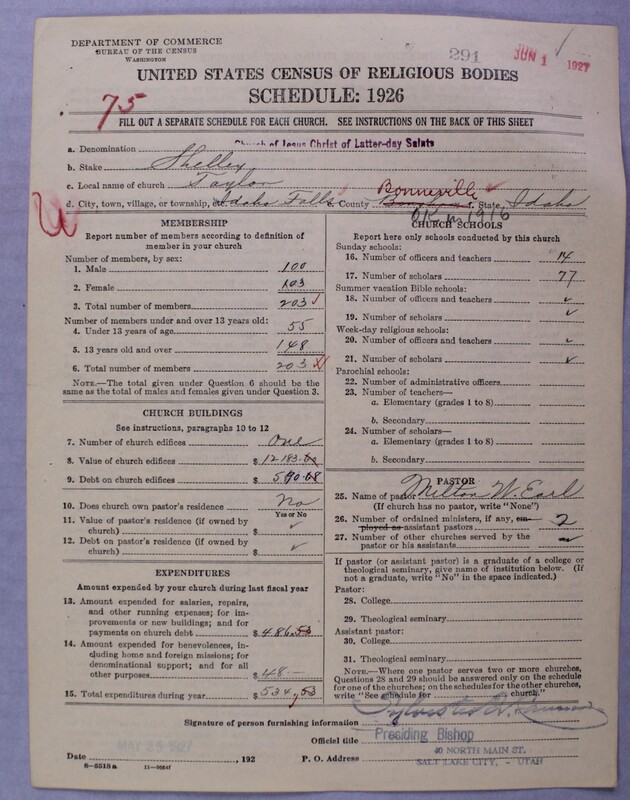 DEPARTMENT OF COMMERCE
BUREAU OF THE CENSUS
WASHINGTON
291
JUN 1 1927
UNITED STATES CENSUS OF RELIGIOUS BODIES
SCHEDULE: 1926
75
FILL OUT A SEPARATE SCHEDULE FOR EACH CHURCH. SEE INSTRUCTIONS ON THE BACK OF THIS SHEET
a. Denomination Church of Jesus Christ of Latter-day Saints
b. Stake Shelley
c. Local name of church Taylor
d. City, town, village, or township, Idaho Falls e. County Bonneville Bingham f. State, Idaho
OK in 1916
MEMBERSHIP
Report number of members according to definition of member in your church
Number of members, by sex:
1. Male 100
2. Female 103
3. Total number of members 203
Number of members under and over 13 years old:
4. Under 13 years of age 55
5. 13 years old and over 148
6. Total number of members 203
NOTE.—The total given under Question 6 should be the
same as the total of males and females given under Question 3.
CHURCH BUILDINGS
See instructions, paragraphs 10 to 12
7. Number of church edifices One
8. Value of church edifices $ 12183.00
9. Debt on church edifices $
10. Does church own pastor's residence No
Yes or No
11. Value of pastor's residence (if owned by
church) $ ✓
12. Debt on pastor's residence (if owned by
church) $ ✓
EXPENDITURES
Amount expended by your church during last fiscal year
13. Amount expended for salaries, repairs,
and other running expenses; for im-
provements or new buildings; and for
payments on church debt $ 486.53
14. Amount expended for benevolences, in-
cluding home and foreign missions; for
denominational support; and for all
other purposes $ 48.—
15. Total expenditures during year $ 534.53
CHURCH SCHOOLS
Report here only schools conducted by this church
Sunday schools:
16. Number of officers and teachers 14
17. Number of scholars 77
Summer vacation Bible schools:
18. Number of officers and teachers ✓
19. Number of scholars ✓
Week-day religious schools:
20. Number of officers and teachers ✓
21. Number of scholars ✓
Parochial schools:
22. Number of administrative officers
23. Number of teachers—
a. Elementary (grades 1 to 8)
b. Secondary
24. Number of scholars—
a. Elementary (grades 1 to 8)
b. Secondary
PASTOR
25. Name of pastor Milton W. Earl
(If church has no pastor, write "None")
26. Number of ordained ministers, if any, em-
ployed as assistant pastors 2
27. Number of other churches served by the
pastor or his assistants
If pastor (or assistant pastor) is a graduate of a college or
theological seminary, give name of institution below. (If
not a graduate, write "No" in the space indicated.)
Pastor:
28. College
29. Theological seminary
Assistant pastor:
30. College
31. Theological seminary
NOTE.—Where one pastor serves two or more churches,
Questions 28 and 29 should be answered only on the schedule
for one of the churches; on the schedules for the other churches,
write "See schedule for church."
Signature of person furnishing information Sylvester Q. Cannon
Official title Presiding Bishop
Date MAY 25 1927, 192 P. O. Address 40 NORTH MAIN ST.
SALT LAKE CITY, - UTAH
8-5518a 11-9064f